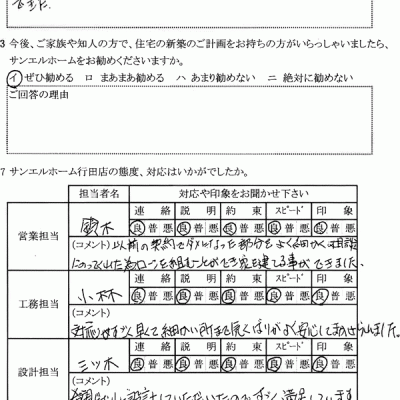 3 今後、ご家族や知人の方で、住宅の新築のご計画をお持ちの方がいらっしゃいましたら、
サンエルホームをお勧めくださいますか。
イ ぜひ勧める ロ まあまあ勧める ハ あまり勧めない ニ 絶対に勧めない
ご回答の理由
7 サンエルホーム行田店の態度、対応はいかがでしたか。
担当者名 対応や印象をお聞かせ下さい
連絡 説明 約束 スピード 印象
営業担当 鈴木 良 普 悪 良 普 悪 良 普 悪 良 普 悪 良 普 悪
(コメント) 以前の契約でダメになった部分をよく細かく相談
にのってくれた為ローンを組むことができ家を建てる事ができました。
連絡 説明 約束 スピード 印象
工務担当 小林 良 普 悪 良 普 悪 良 普 悪 良 普 悪 良 普 悪
(コメント)
対応がすごく早くて細かい所まで気くばりがよく安心して
連絡 説明 約束 スピード 印象
設計担当 三ツ木 良 普 悪 良 普 悪 良 普 悪 良 普 悪 良 普 悪
(コメント)
設計していただいたので すごく満足しています